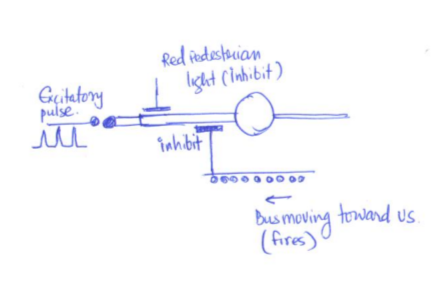 Red Pedestrian
light (Inhibit)
Excitatory
pulse.
inhibit
Bus moving toward us
(fires)